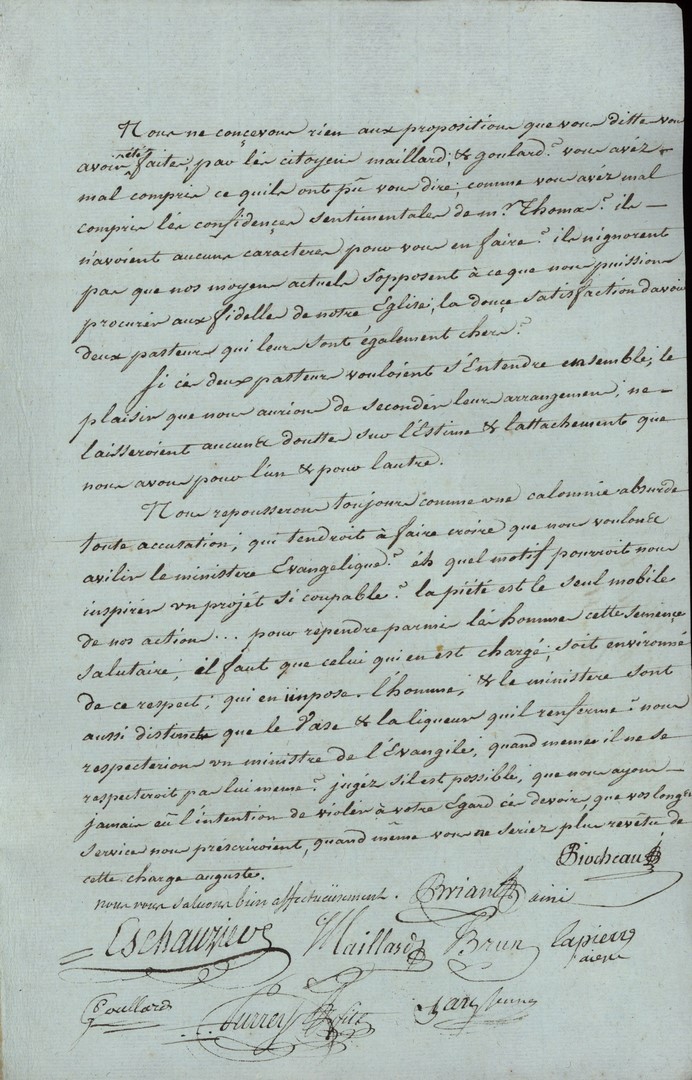 Nous ne conçevons rien aux propositions que vous ditte vous
avoir été faites, par lés citoyens maillard; & goulard? vous avéz
mal compris ce quils ont pu vous dire; comme vous avéz mal
compris lés confidençes sentimentales de mr. Thomas? ils
n'avoient aucuns caracteres pour vous en faire? ils n'ignorent
pas que nos moyens actuels s'opposent à ce que nous puissions
procurér aux fidelles de notre Eglise; la douçe satisfaction d'avoir
deux pasteurs qui leurs sont également chers?
Si cés deux pasteurs vouloient s'Entendre ensemble; le
plaisir que nous aurions de secondér leurs arrangemens; ne
laisseroient aucuns doutte sur l'Estime & l'attachement que
nous avons pour l'un & pour l'autre.
Nous repousserons toujours comme une calomnie absurde
toute accusation; qui tendroit à faire croire que nous voulons
avilir le ministere Evangelique? éh quel motif pourroit nous
inspirér un projét si coupable? la piété est le seul mobile
de nos actions... pour rependre parmi lés hommes cette semençe
salutaire; il faut que celui qui en est chargé; soit environné
de ce respect; qui en impose. l'homme; & le ministere sont
aussi distincts que le Vase & la liqueur quil renferme? nous
respecterions un ministre de l'Evangile, quand meme il ne se
respecteroit pas lui meme? jugéz s'il est possible, que nous ayons
jamais eû l'intention de violér à votre Egard ce devoir, que vos longs
services nous préscriroient, quand même vous ne seriez plus revêtu de
cette charge auguste.
Riocheau
nous vous saluons bien affectueusement.
Briand ainé
Eschauzier
Maillard
Brun
Lapierre
Goullard
Jary jeune